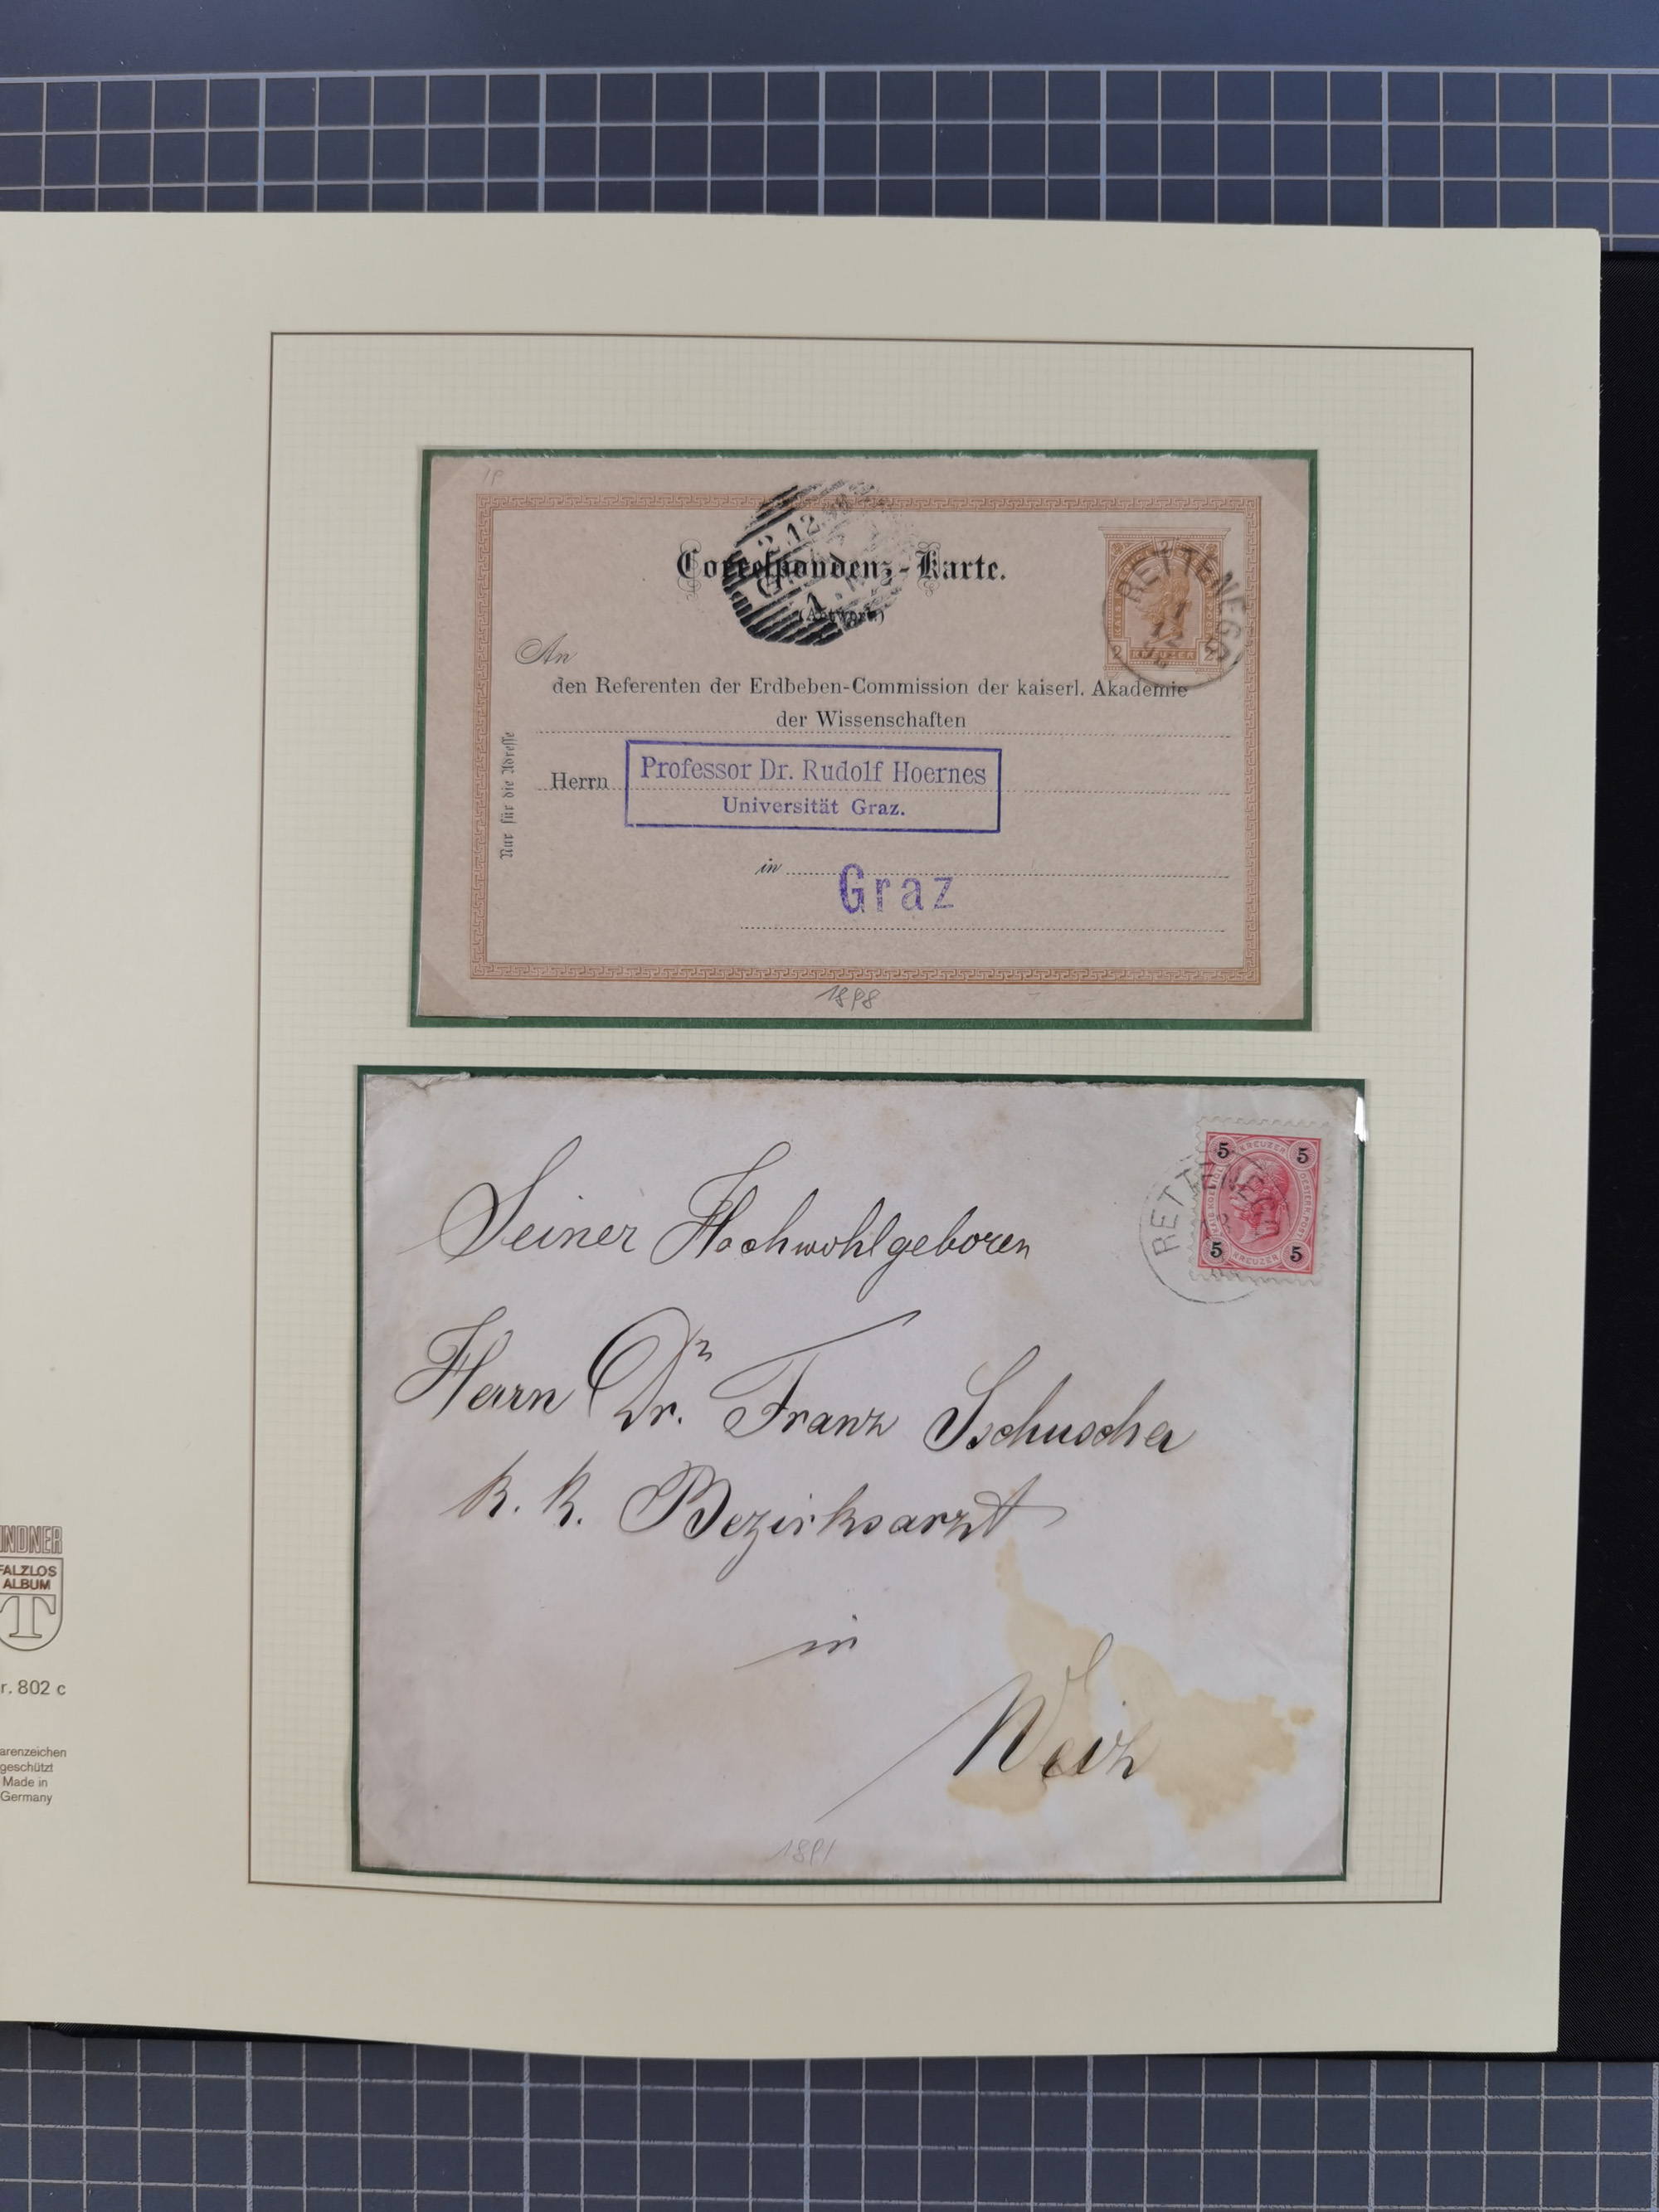 2.12.98
Correspondenz-Karte.
(Antwort.)
2
RETTENEGG
1
12
98
2 KREUZER 2
An
den Referenten der Erdbeben-Commission der kaiserl. Akademie
der Wissenschaften
Nur für die Adresse
Herrn
Professor Dr. Rudolf Hoernes
Universität Graz.
in
Graz
1898
5 KREUZER 5
RETTENEGG
5 KREUZER 5
Seiner Hochwohlgeboren
Herrn Dr. Franz
k. k. Bezirksarzt
in
Weiz
1891
LINDNER
FALZLOS
ALBUM
T
r. 802 c
arenzeichen
geschützt
Made in
Germany